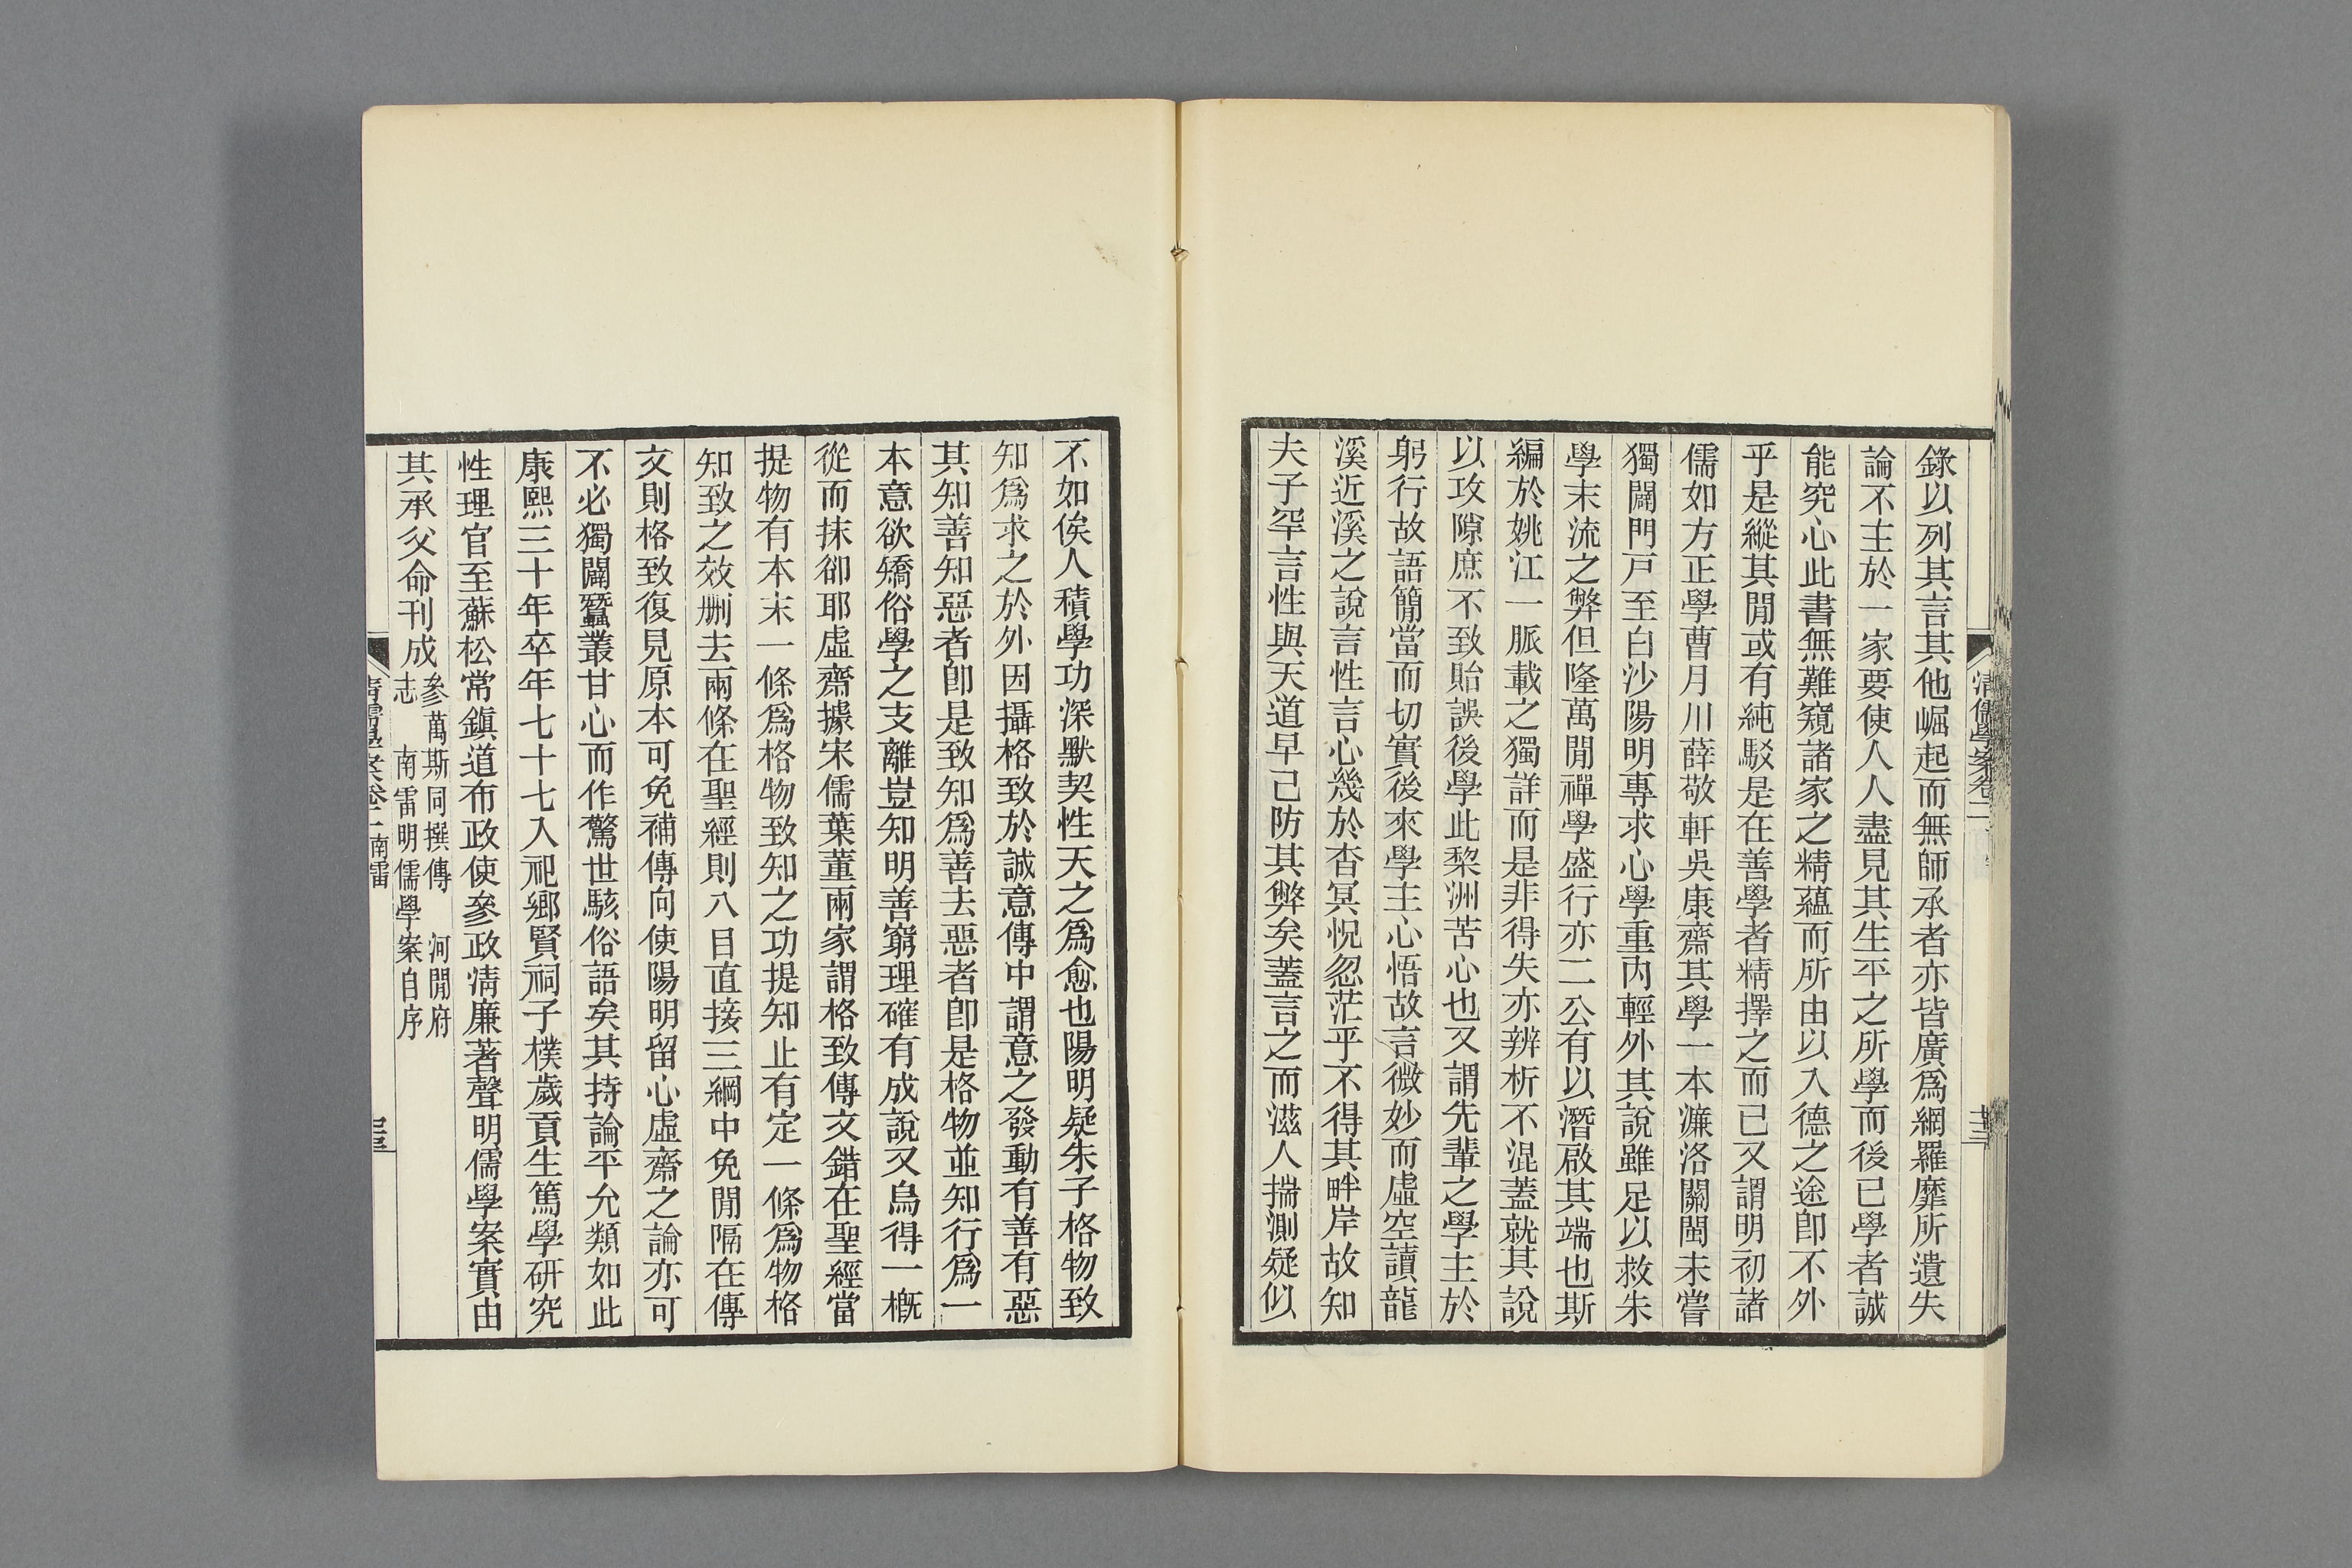 錄以列其言其他崛起而無師承者亦皆廣爲網羅靡所遺失
論不主於一家要使人人盡見其生平之所學而後已學者誠
能究心此書無難窺諸家之精蘊而所由以入德之途卽不外
乎是縱其閒或有純駁是在善學者精擇之而已又謂明初諸
儒如方正學曹月川薛敬軒吳康齋其學一本濂洛關閩未嘗
獨闢門戸至白沙陽明專求心學重內輕外其說雖足以救朱
學末流之弊但隆萬閒禪學盛行亦二公有以潛啟其端也斯
編於姚江一脈載之獨詳而是非得失亦辨析不混蓋就其說
以攻隙庶不致貽誤後學此棃洲苦心也又謂先輩之學主於
躬行故語簡當而切實後來學主心悟故言微妙而虛空讀龍
溪近溪之說言性言心幾於杳冥怳忽茫乎不得其畔岸故知
夫子罕言性與天道早已防其弊矣蓋言之而滋人揣測疑似
清儒學案卷二
不如俟人積學功深默契性天之爲愈也陽明疑朱子格物致
知爲求之於外因攝格致於誠意傳中謂意之發動有善有惡
其知善知惡者卽是致知爲善去惡者卽是格物並知行爲一
本意欲矯俗學之支離豈知明善窮理確有成說又烏得一槪
從而抹卻耶虛齋據宋儒葉董兩家謂格致傳文錯在聖經當
提物有本末一條爲格物致知之功提知止有定一條爲物格
知致之效删去兩條在聖經則八目直接三綱中免閒隔在傳
文則格致復見原本可免補傳向使陽明留心虛齋之論亦可
不必獨闢蠶叢甘心而作驚世駭俗語矣其持論平允類如此
康熙三十年卒年七十七入祀鄕賢祠子樸歲貢生篤學研究
性理官至蘇松常鎭道布政使參政淸廉著聲明儒學案實由
其承父命刊成參萬斯同撰傳　河閒府
志　南雷明儒學案自序
清儒學案卷二 南雷